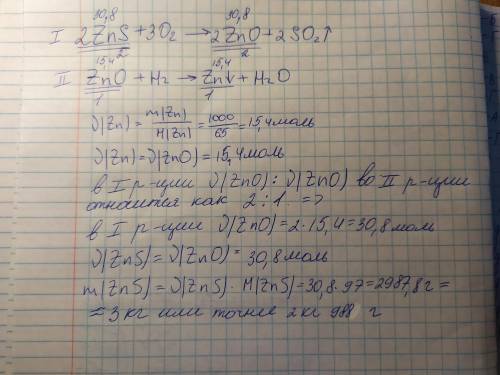 30,8 30,8
I 2ZnS + 3O₂ → 2ZnO + 2SO₂↑
2 2
15,4 15,4
II ZnO + H₂ → Zn↓ + H₂O
1 1
ν(Zn) = m(Zn)/M(Zn) = 1000/65 = 15,4 моль
ν(Zn) = ν(ZnO) = 15,4 моль
в I р-ции ν(ZnO) : ν(ZnO) во II р-ции
относится как 2 : 1 =>
в I р-ции ν(ZnO) = 2 · 15,4 = 30,8 моль
ν(ZnS) = ν(ZnO) = 30,8 моль
m(ZnS) = ν(ZnS) · M(ZnS) = 30,8 · 97 = 2987,8 г =
≈ 3 кг или точнее 2 кг 988 г